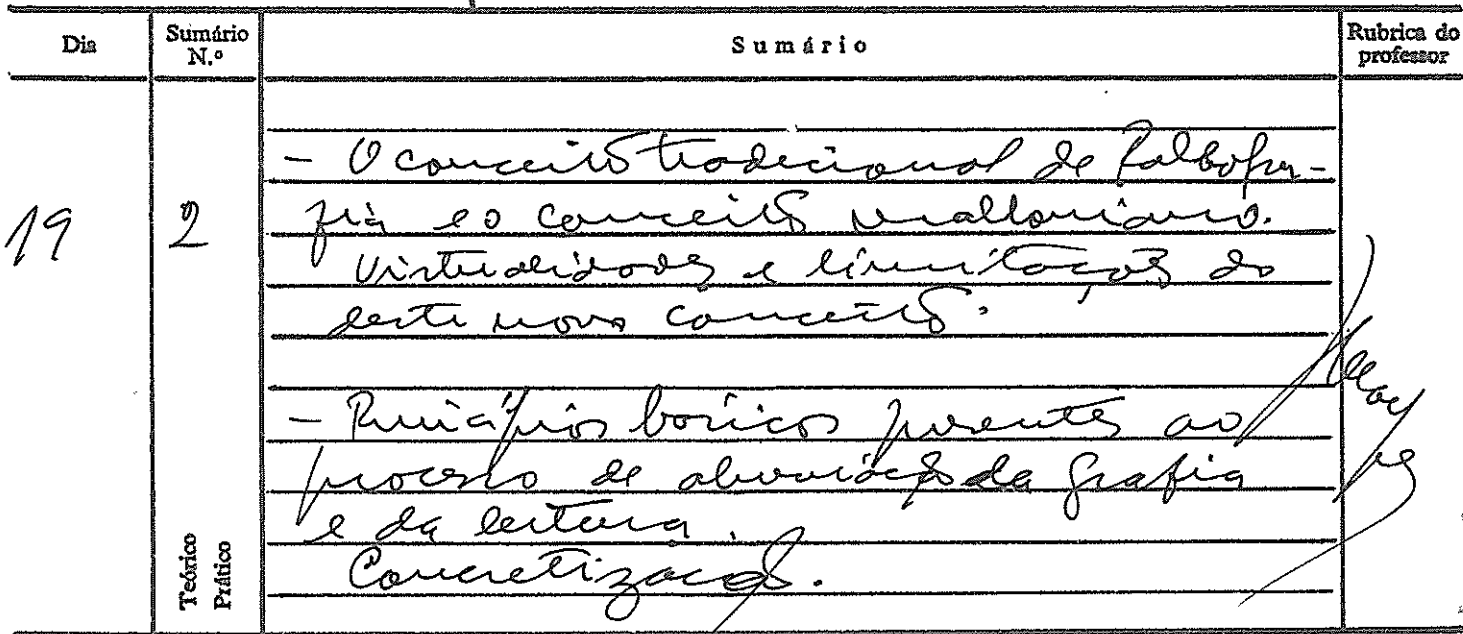 Dia
Sumário N.º
Sumário
Rubrica do professor
19
2
- O conceito tradicional de Paleogra-
fia e o conceito malloniano.
Virtualidades e limitações do
deste novo conceito.
- Princípios básicos presentes ao
processo de abreviação da grafia
e da leitura.
Concretização.
Teórico
Prático